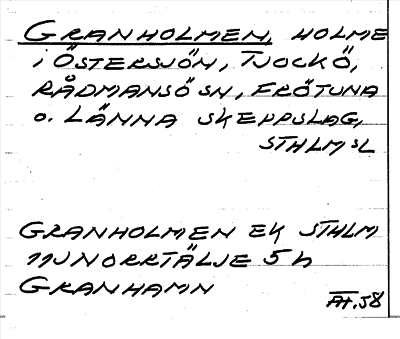 GRANHOLMEN, HOLME
i ÖSTERSJÖN, TJOCKÖ,
RÅDMANSÖ SN, FRÖTUNA
o. LÄNNA SKEPPSLAG,
STHLMSL
GRANHOLMEN EK STHLM
11J NORRTÄLJE 5 h
GRANHAMN
AH.58